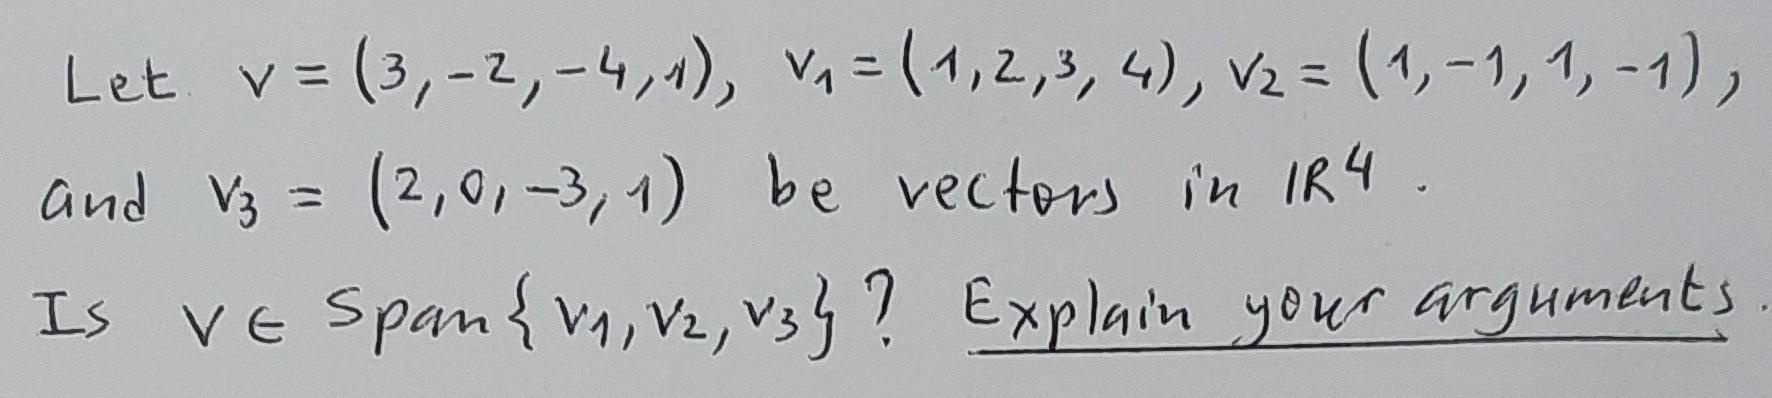 Let v = (3,-2,-4,1), v1 = (1,2,3,4), v2 = (1,-1,1,-1),
and v3 = (2,0,-3,1) be vectors in IR4.
Is v ∈ Span{v1, v2, v3}? Explain your arguments.